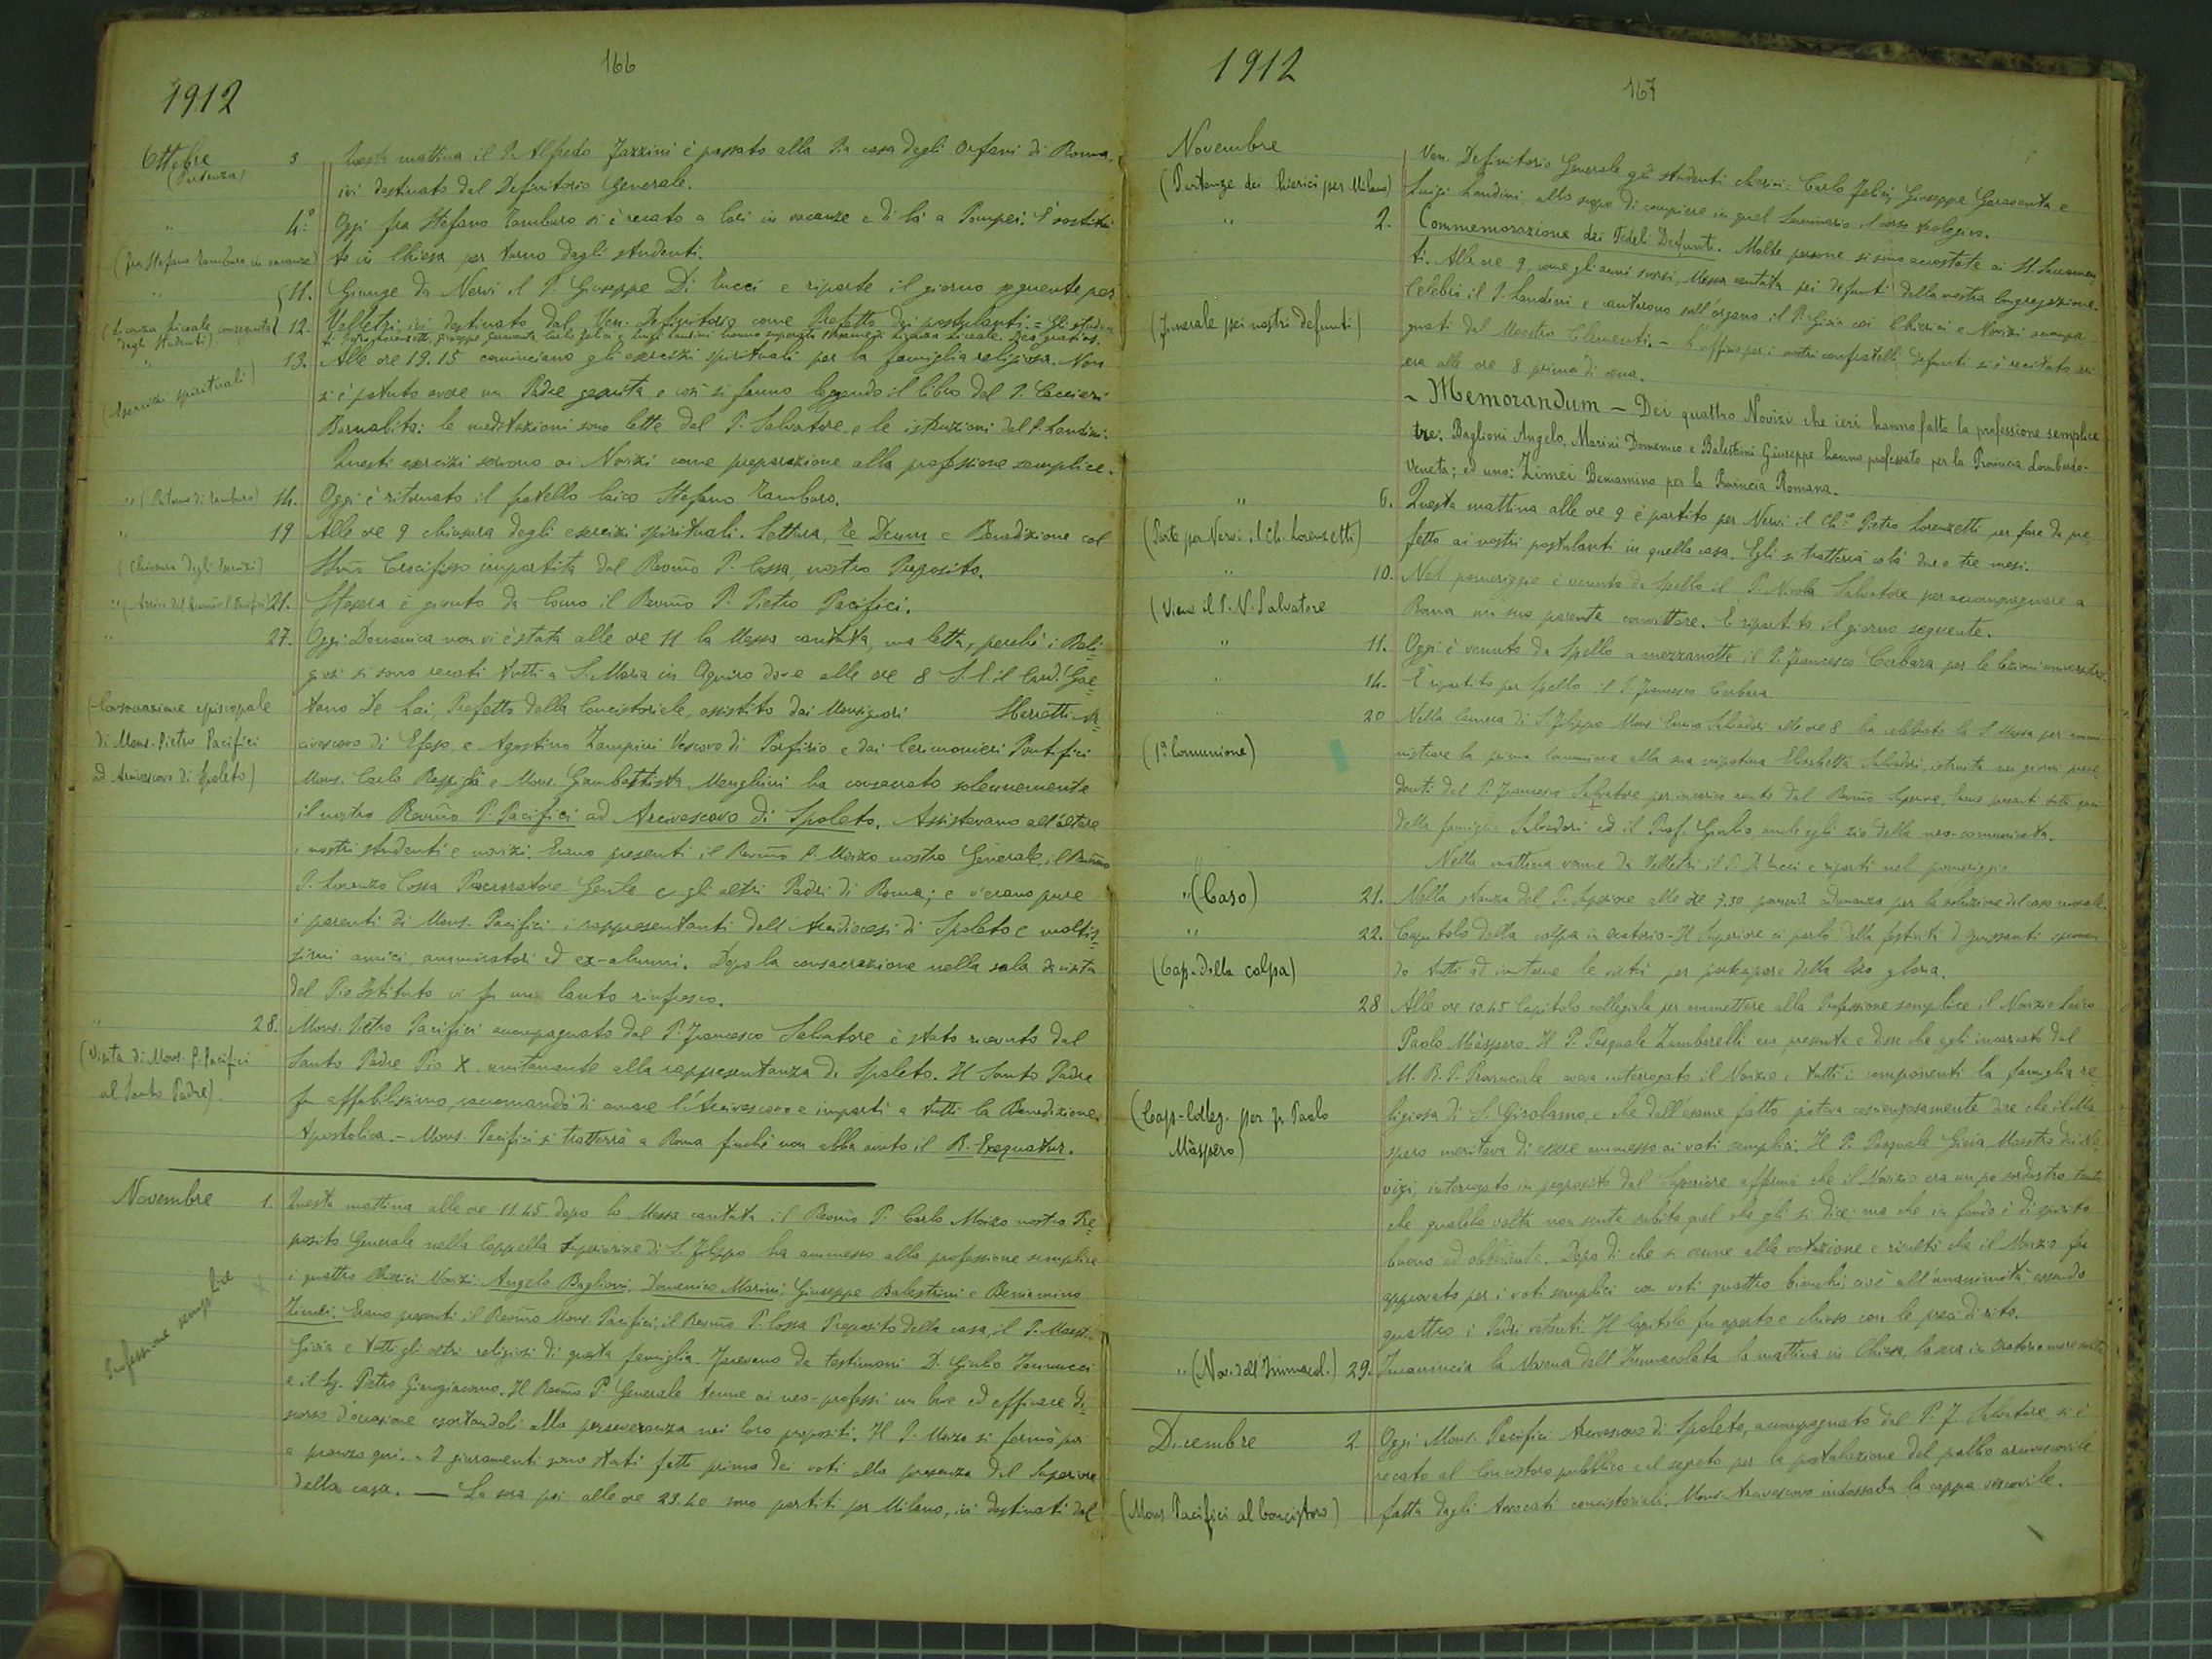 166
1912
Ottobre 3 Questa mattina il P. Alfredo Fazzini è passato alla Pia casa degli Orfani di Roma,
(Partenza) ivi destinato dal Definitorio Generale.
" 4° Oggi fra Stefano Tamburo si è recato a Cori in vacanze e di là a Pompei. È sostitui
(Fra Stefano Tamburo in vacanze) to in Chiesa per turno dagli studenti.
" 11. Giunge da Nervi il P. Giuseppe Di Tucci e riparte il giorno seguente per
(Licenza liceale conseguita dagli studenti) 12. Velletri, ivi destinato dal Ven. Definitorio come Prefetto dei postulanti. = Gli studen
ti Pietro Lorenzetti, Giuseppe Garaventa, Carlo Felici e Luigi Landini hanno superato l'esame di licenza liceale. Deo gratias.
" 13. Alle ore 19.15 cominciano gli esercizi spirituali per la famiglia religiosa. Non
(Esercizi spirituali) si è potuto avere un Padre gesuita e così si fanno leggendo il libro del P.
Barnabita: le meditazioni sono lette dal P. Salvatore e le istruzioni dal P. Landini.
Questi esercizi servono ai Novizi come preparazione alla professione semplice.
" (Ritorno di Tamburo) 14. Oggi è ritornato il fratello laico Stefano Tamburo.
" 19 Alle ore 9 chiusura degli esercizi spirituali. Lettura, Te Deum e Benedizione col
(Chiusura degli Esercizi) SSmo Crocifisso impartita dal Revmo P. Cossa, nostro Preposito.
" 21. Stasera è giunto da Como il Revmo P. Pietro Pacifici.
" 27. Oggi Domenica non vi è stata alle ore 11 la Messa cantata, ma letta, perchè i Reli=
giosi si sono recati tutti a S. Maria in Aquiro dove alle ore 8 S. E. il Card. Gae=
(Consacrazione episcopale tano De Lai, Prefetto della Concistoriale, assistito dai Monsignori Sbarretti Ar=
di Mons. Pietro Pacifici civescovo di Efeso e Agostino Zampini Vescovo di Porfirio e dai Cerimonieri Pontifici
ad Arcivescovo di Spoleto) Mons. Carlo Respighi e Mons. Giambattista Menghini ha consacrato solennemente
il nostro Revmo P. Pacifici ad Arcivescovo di Spoleto. Assistevano all'altare
i nostri studenti e novizi. Erano presenti il Revmo P. Moizo nostro Generale, il Revmo
P. Lorenzo Cossa Procuratore Genle e gli altri Padri di Roma; e v'erano pure
i parenti di Mons. Pacifici, i rappresentanti dell'Arcidiocesi di Spoleto e moltis=
simi amici, ammiratori ed ex-alunni. Dopo la consacrazione nella sala di visita
del Pio Istituto vi fu un lauto rinfresco.
" 28. Mons. Pietro Pacifici accompagnato dal P. Francesco Salvatore è stato ricevuto dal
(Visita di Mons. P. Pacifici Santo Padre Pio X. unitamente alla rappresentanza di Spoleto. Il Santo Padre
al Santo Padre). fu affabilissimo, raccomandò di amare l'Arcivescovo e impartì a tutti la Benedizione
Apostolica. - Mons. Pacifici si tratterrà a Roma finché non abbia avuto il R. Exequatur.
Novembre 1. Questa mattina alle ore 11.45 dopo la Messa cantata il Revmo P. Carlo Moizo nostro Pre=
posito Generale nella Cappella superiore di S. Filippo ha ammesso alla professione semplice
Professione semplice i quattro Chierici Novizi: Angelo Baglioni, Domenico Marini, Giuseppe Balestrini e Beniamino
Zimei. Erano presenti il Revmo Mons. Pacifici, il Revmo P. Cossa Preposito della casa, il P. Maest.
Gioia e tutti gli altri religiosi di questa famiglia. Facevano da testimoni D. Giulio Iannucci
e il Sg. Pietro Giangiacomo. Il Revmo P. Generale tenne ai neo-professi un breve ed efficace di=
scorso d'occasione esortandoli alla perseveranza nei loro propositi. Il P. Moizo si fermò poi
a pranzo qui. - I giuramenti sono stati fatti prima dei voti alla presenza del Superiore
della casa. — La sera poi alle ore 23.40 sono partiti per Milano, ivi destinati dal
1912
167
Novembre Ven. Definitorio Generale gli studenti chierici: Carlo Felici, Giuseppe Garaventa e
(Partenze dei chierici per Milano) Luigi Landini, allo scopo di compiere in quel Seminario il corso teologico.
" 2. Commemorazione dei Fedeli Defunti. Molte persone si sono accostate ai SS. Sacramen
ti. Alle ore 9, come gli anni scorsi, Messa cantata pei defunti della nostra Congregazione.
(Funerale pei nostri defunti) Celebrò il P. Landini e cantarono sull'organo il P. Gioia coi Chierici e Novizi accompa
gnati dal Maestro Clementi. - L'Officio per i nostri confratelli defunti si è recitato ieri
sera alle ore 8 prima di cena.
- Memorandum - Dei quattro Novizi che ieri hanno fatto la professione semplice
tre: Baglioni Angelo, Marini Domenico e Balestrini Giuseppe hanno professato per la Provincia Lombardo-
Veneta; ed uno: Zimei Beniamino per la Provincia Romana.
" 6. Questa mattina alle ore 9 è partito per Nervi il Ch.co Pietro Lorenzetti per fare da pre
(Parte per Nervi il Ch. Lorenzetti) fetto ai nostri postulanti in quella casa. Egli si tratterrà colà due o tre mesi.
" 10. Nel pomeriggio è venuto da Spello il P. Nicola Salvatore per accompagnare a
(Viene il P. N. Salvatore Roma un suo parente convittore. È ripartito il giorno seguente.
" 11. Oggi è venuto da Spello a mezzanotte il P. Francesco Cerbara per le lezioni universitarie.
" 14. È ripartito per Spello il P. Francesco Cerbara
20 Nella Camera di S. Filippo Mons. Enrico Salvadori alle ore 8 ha celebrato la S. Messa per ammi
(1a Comunione) nistrare la prima Comunione alla sua nipotina Elisabetta Salvadori, istruita nei giorni prece
denti dal P. Francesco Salvatore per incarico avuto dal Revmo Superiore. Erano presenti
della famiglia Salvadori ed il Prof. Giulio anche egli zio della neo-comunicata.
" Nella mattina venne da Velletri il P. Di Tucci e ripartì nel pomeriggio
" (Caso) 21. Nella stanza del P. Superiore alle ore 7.30 pomerid. adunanza per la soluzione del caso morale.
" 22. Capitolo della colpa in Oratorio - Il Superiore ci parlò della festività d'Ognissanti spronan
(Cap. della colpa) do tutti ad imitarne le virtù per partecipare della loro gloria.
" 28 Alle ore 10.45 Capitolo collegiale per ammettere alla Professione semplice il Novizio laico
Paolo Màspero. Il P. Pasquale Zambarelli era presente e disse che egli incaricato dal
M. R. P. Provinciale aveva interrogato il Novizio e tutti i componenti la famiglia re
(Cap. Colleg. per fr. Paolo ligiosa di S. Girolamo, e che dall'esame fatto poteva coscienzosamente dire che il Ma
Màspero) spero meritava di essere ammesso ai voti semplici. Il P. Pasquale Gioia Maestro dei No
vizi, interrogato in proposito dal Superiore affermò che il Novizio era un po sordastro, tanto
che qualche volta non sente subito quel che gli si dice; ma che in fondo è di spirito
buono ed obbediente. Dopo di che si venne alla votazione e risultò che il Novizio fu
approvato per i voti semplici con voti quattro bianchi, cioè all'unanimità, essendo
quattro i Padri votanti. Il Capitolo fu aperto e chiuso con le preci di rito.
" (Nov. dell'Immacol.) 29. Incomincia la Novena dell'Immacolata la mattina in Chiesa, la sera in Oratorio more solito
Dicembre 2 Oggi Mons. Pacifici Arcivescovo di Spoleto, accompagnato dal P. F. Salvatore, si è
recato al Concistoro pubblico e al segreto per la postulazione del pallio arcivescovile
(Mons Pacifici al Concistoro) fatta dagli Avvocati concistoriali. Mons. Arcivescovo indossava la cappa vescovile.